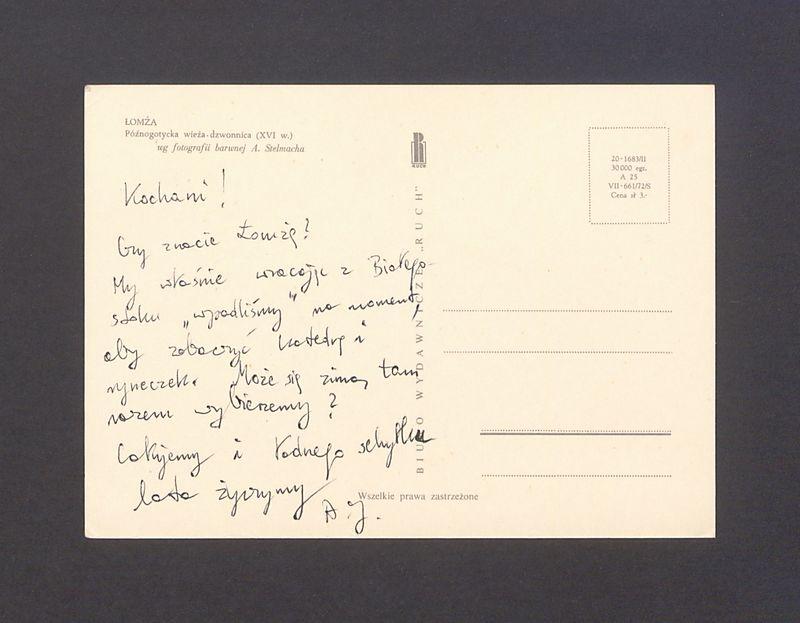 ŁOMŻA
Późnogotycka wieża-dzwonnica (XVI w.)
wg fotografii barwnej A. Stelmacha
Kochani!
Czy znacie Łomżę?
My właśnie wracając z Białego-
stoku „wpadliśmy” na moment,
aby zobaczyć katedrę i
ryneczek. Może się zimą tam
razem wybierzemy?
Całujemy i ładnego schyłku
lata życzymy
A J.
RUCH
BIURO WYDAWNICZE „RUCH”
20-1683/II
30 000 egz.
A 25
VII-661/72/S
Cena zł 3.-
Wszelkie prawa zastrzeżone